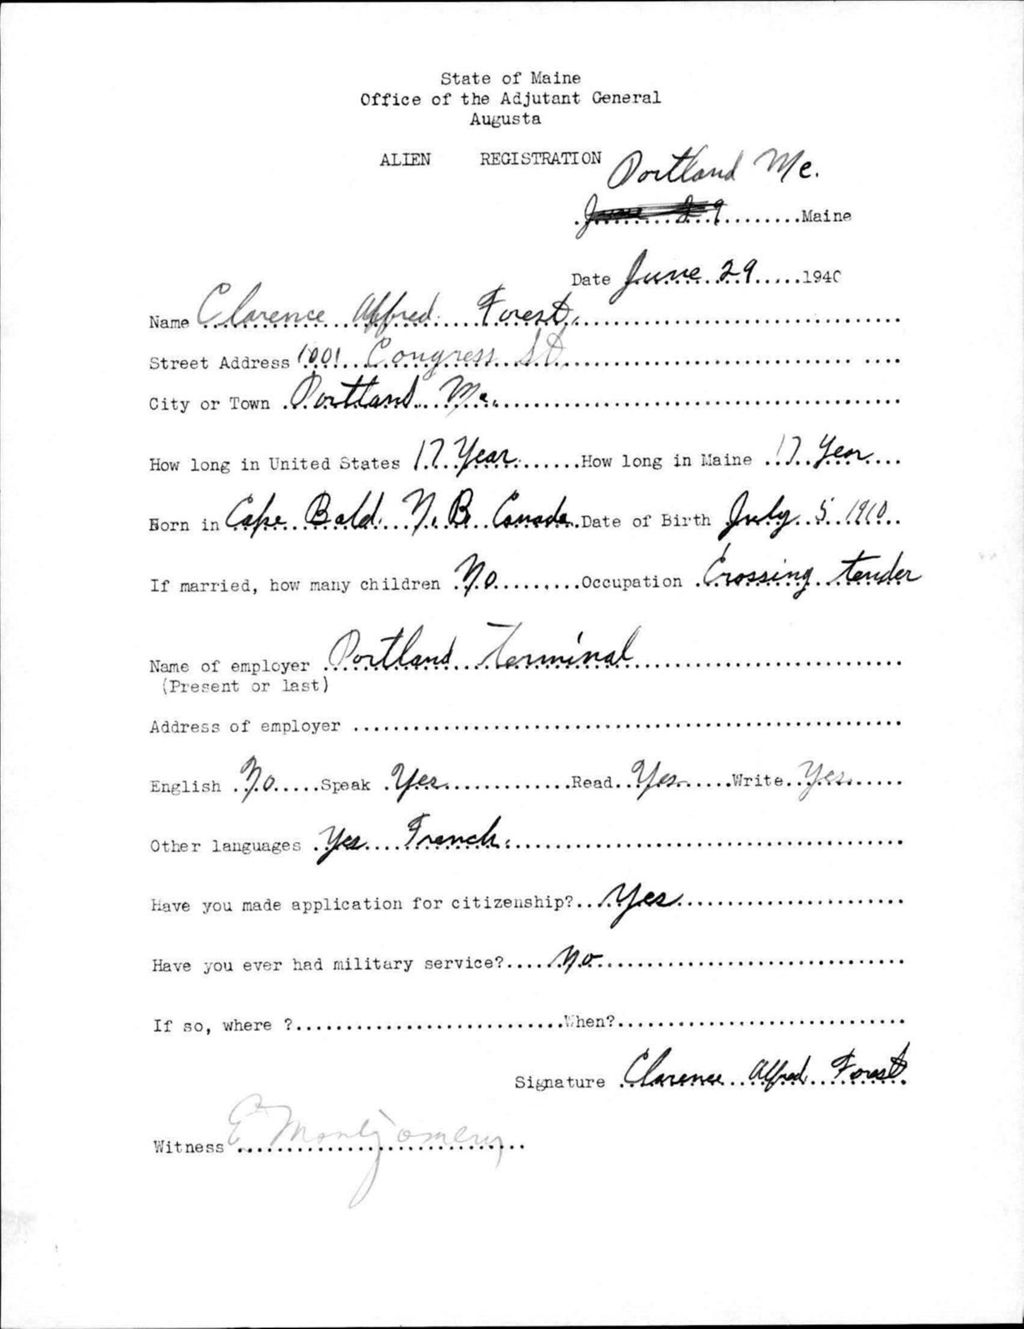 State of Maine
Office of the Adjutant General
Augusta
ALIEN REGISTRATION
Portland Me.
June 29 Maine
Date June 29 1940
Name Clarence Alfred Forest.
Street Address 1001 Congress St
City or Town Portland Me.
How long in United States 17 Year How long in Maine 17 Year
Born in Cape Bald N.B. Canada Date of Birth July 5 1910
If married, how many children No Occupation Crossing tender
Name of employer Portland Terminal
(Present or last)
Address of employer
English No Speak Yes Read Yes Write Yes
Other languages Yes French.
Have you made application for citizenship? Yes
Have you ever had military service? No
If so, where ? When?
Signature Clarence Alfred Forest
Witness E Montgomery